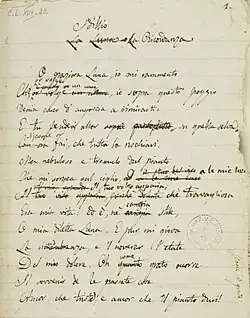 1.
Idillio
La Luna o la Ricordanza
O graziosa Luna, io mi rammento
Che, io sopra questo poggio
Venia carco d'angoscia a rimirarti:
E tu pendevi allor su quella selva
Siccome or fai, che tutta la rischiari.
Ma nebuloso e tremulo dal pianto
Che mi sorgea sul ciglio, a le mie luci
Il tuo viso apparia, che travagliosa
Era mia vita: ed è, nè cangia stile
O mia diletta Luna. E pur mi giova
La ricordanza, e 'l noverar l'etate
Del mio dolore. Oh come grato occorre
Il sovvenir de le passate
Ancor che triste, e ancor che il pianto duri!